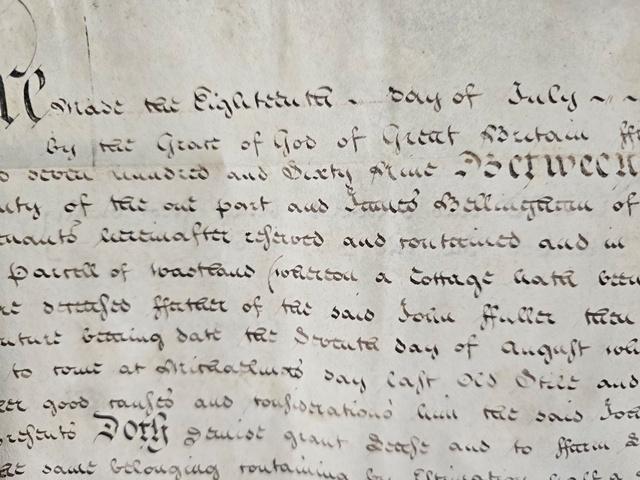 re made the Eighteenth day of July
by the Grace of God of Great Britain ffr
d seven hundred and Sixty Nine Between
nty of the one part and James Bellingham of
enants hereinafter reserved and contained and in
Parcell of wastland (whereon a Cottage hath been
re deceased ffather of the said John ffuller then
nture bearing date the Seventh day of August wh
to come at Michaelmas day last Old Stile and
er good causes and considerations him the said Joh
resents Doth demise grant Lease and to ffarm L
he same belonging containing by Estimation half a